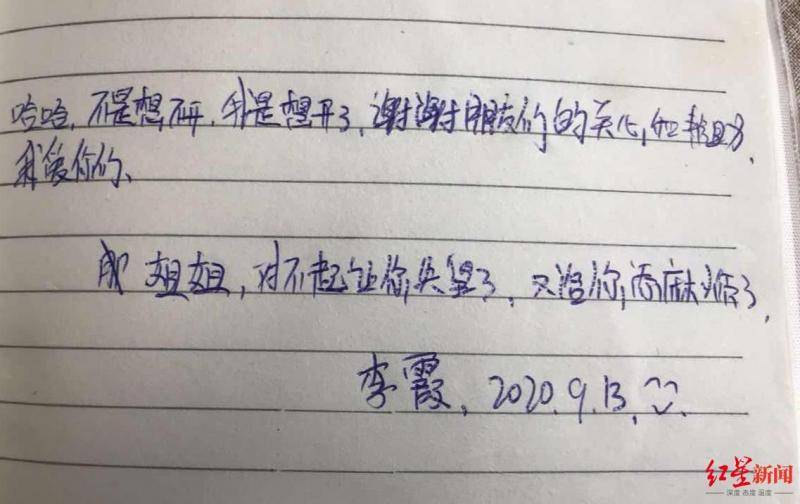 哈哈,不是想不开,我是想开了,谢谢朋友们的关心,和帮助,
我爱你们、
成 姐姐,对不起让你失望了,又给你添麻烦了,
李霞、2020.9.13.
红星新闻
深度 态度 温度